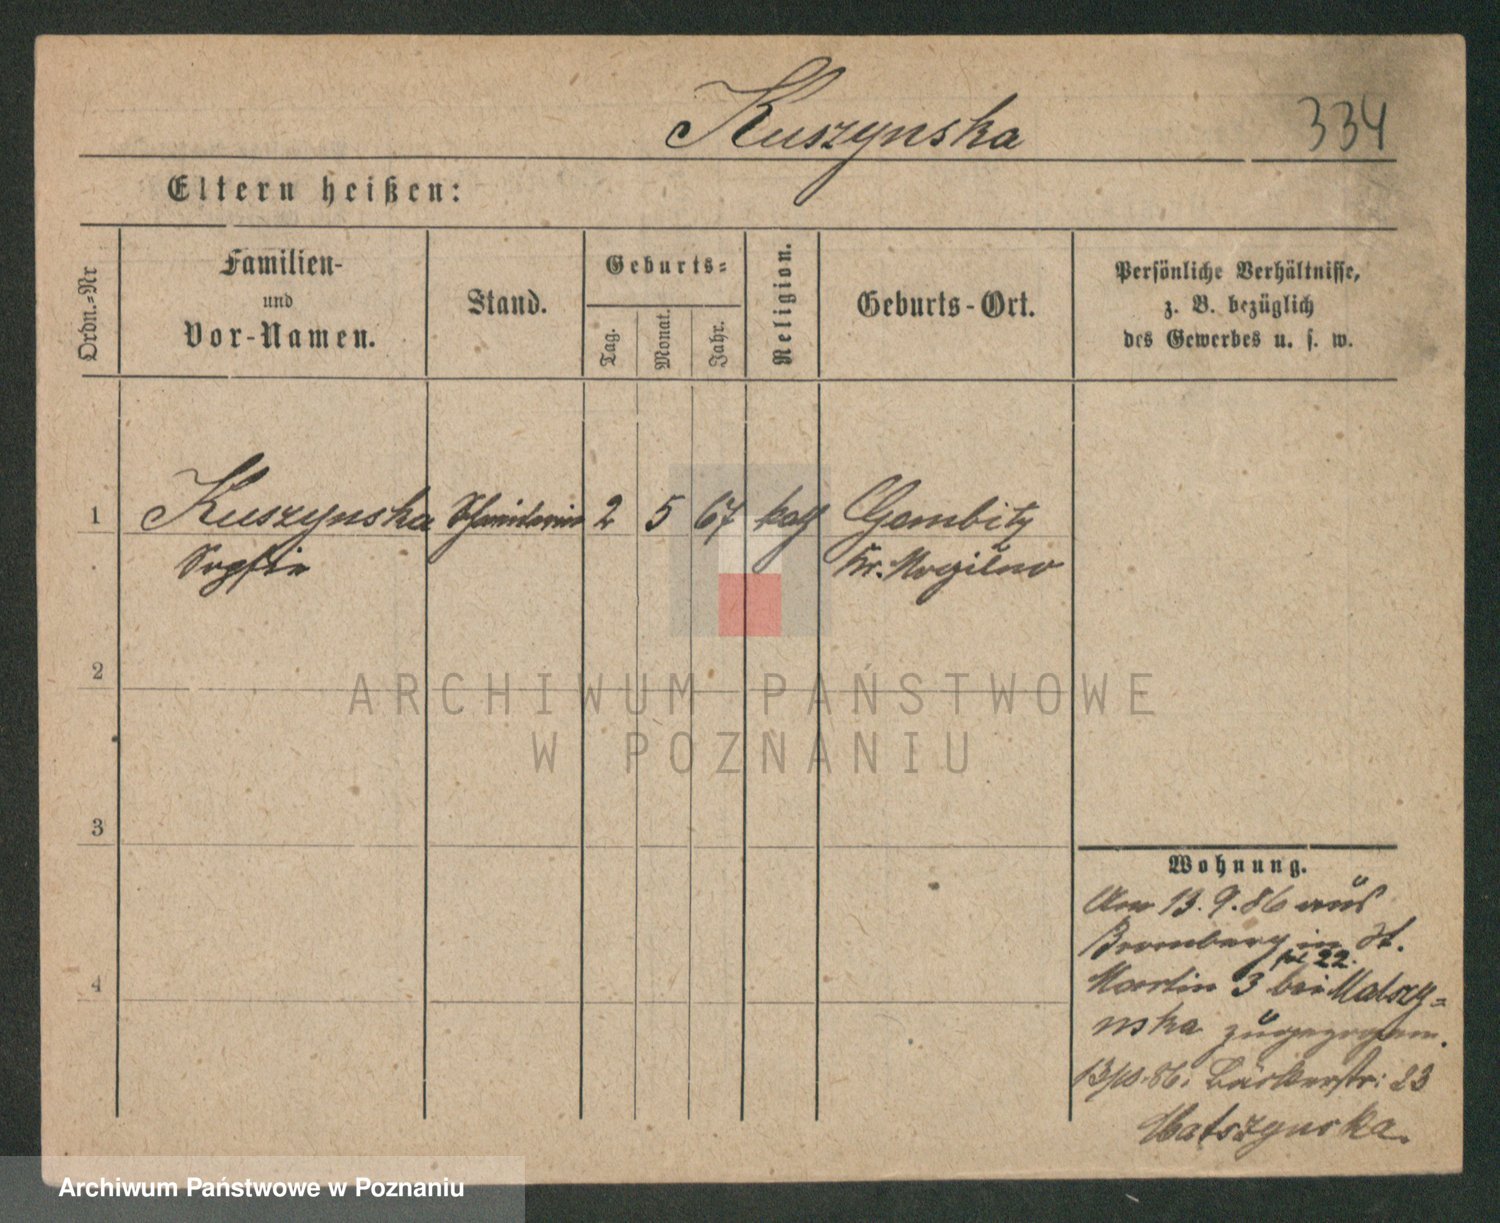 Kuszynska
334
Eltern heißen:
Ordn.=Nr
Familien-
und
Vor-Namen.
Stand.
Geburts=
Tag.
Monat.
Jahr.
Religion.
Geburts-Ort.
Persönliche Verhältnisse,
z. B. bezüglich
des Gewerbes u. s. w.
1
Kuszynska Schneiderin 2 5 67 kath Gembitz
Sophie Kr. Mogilno
2
ARCHIWUM PAŃSTWOWE
W POZNANIU
3
4
Wohnung.
Am 13.9.86 aus
Bromberg in St.
22.
Martin 3 bei Matszy=
nska zugezogen.
86: Bäckerstr: 23
Matszynska.
Archiwum Państwowe w Poznaniu